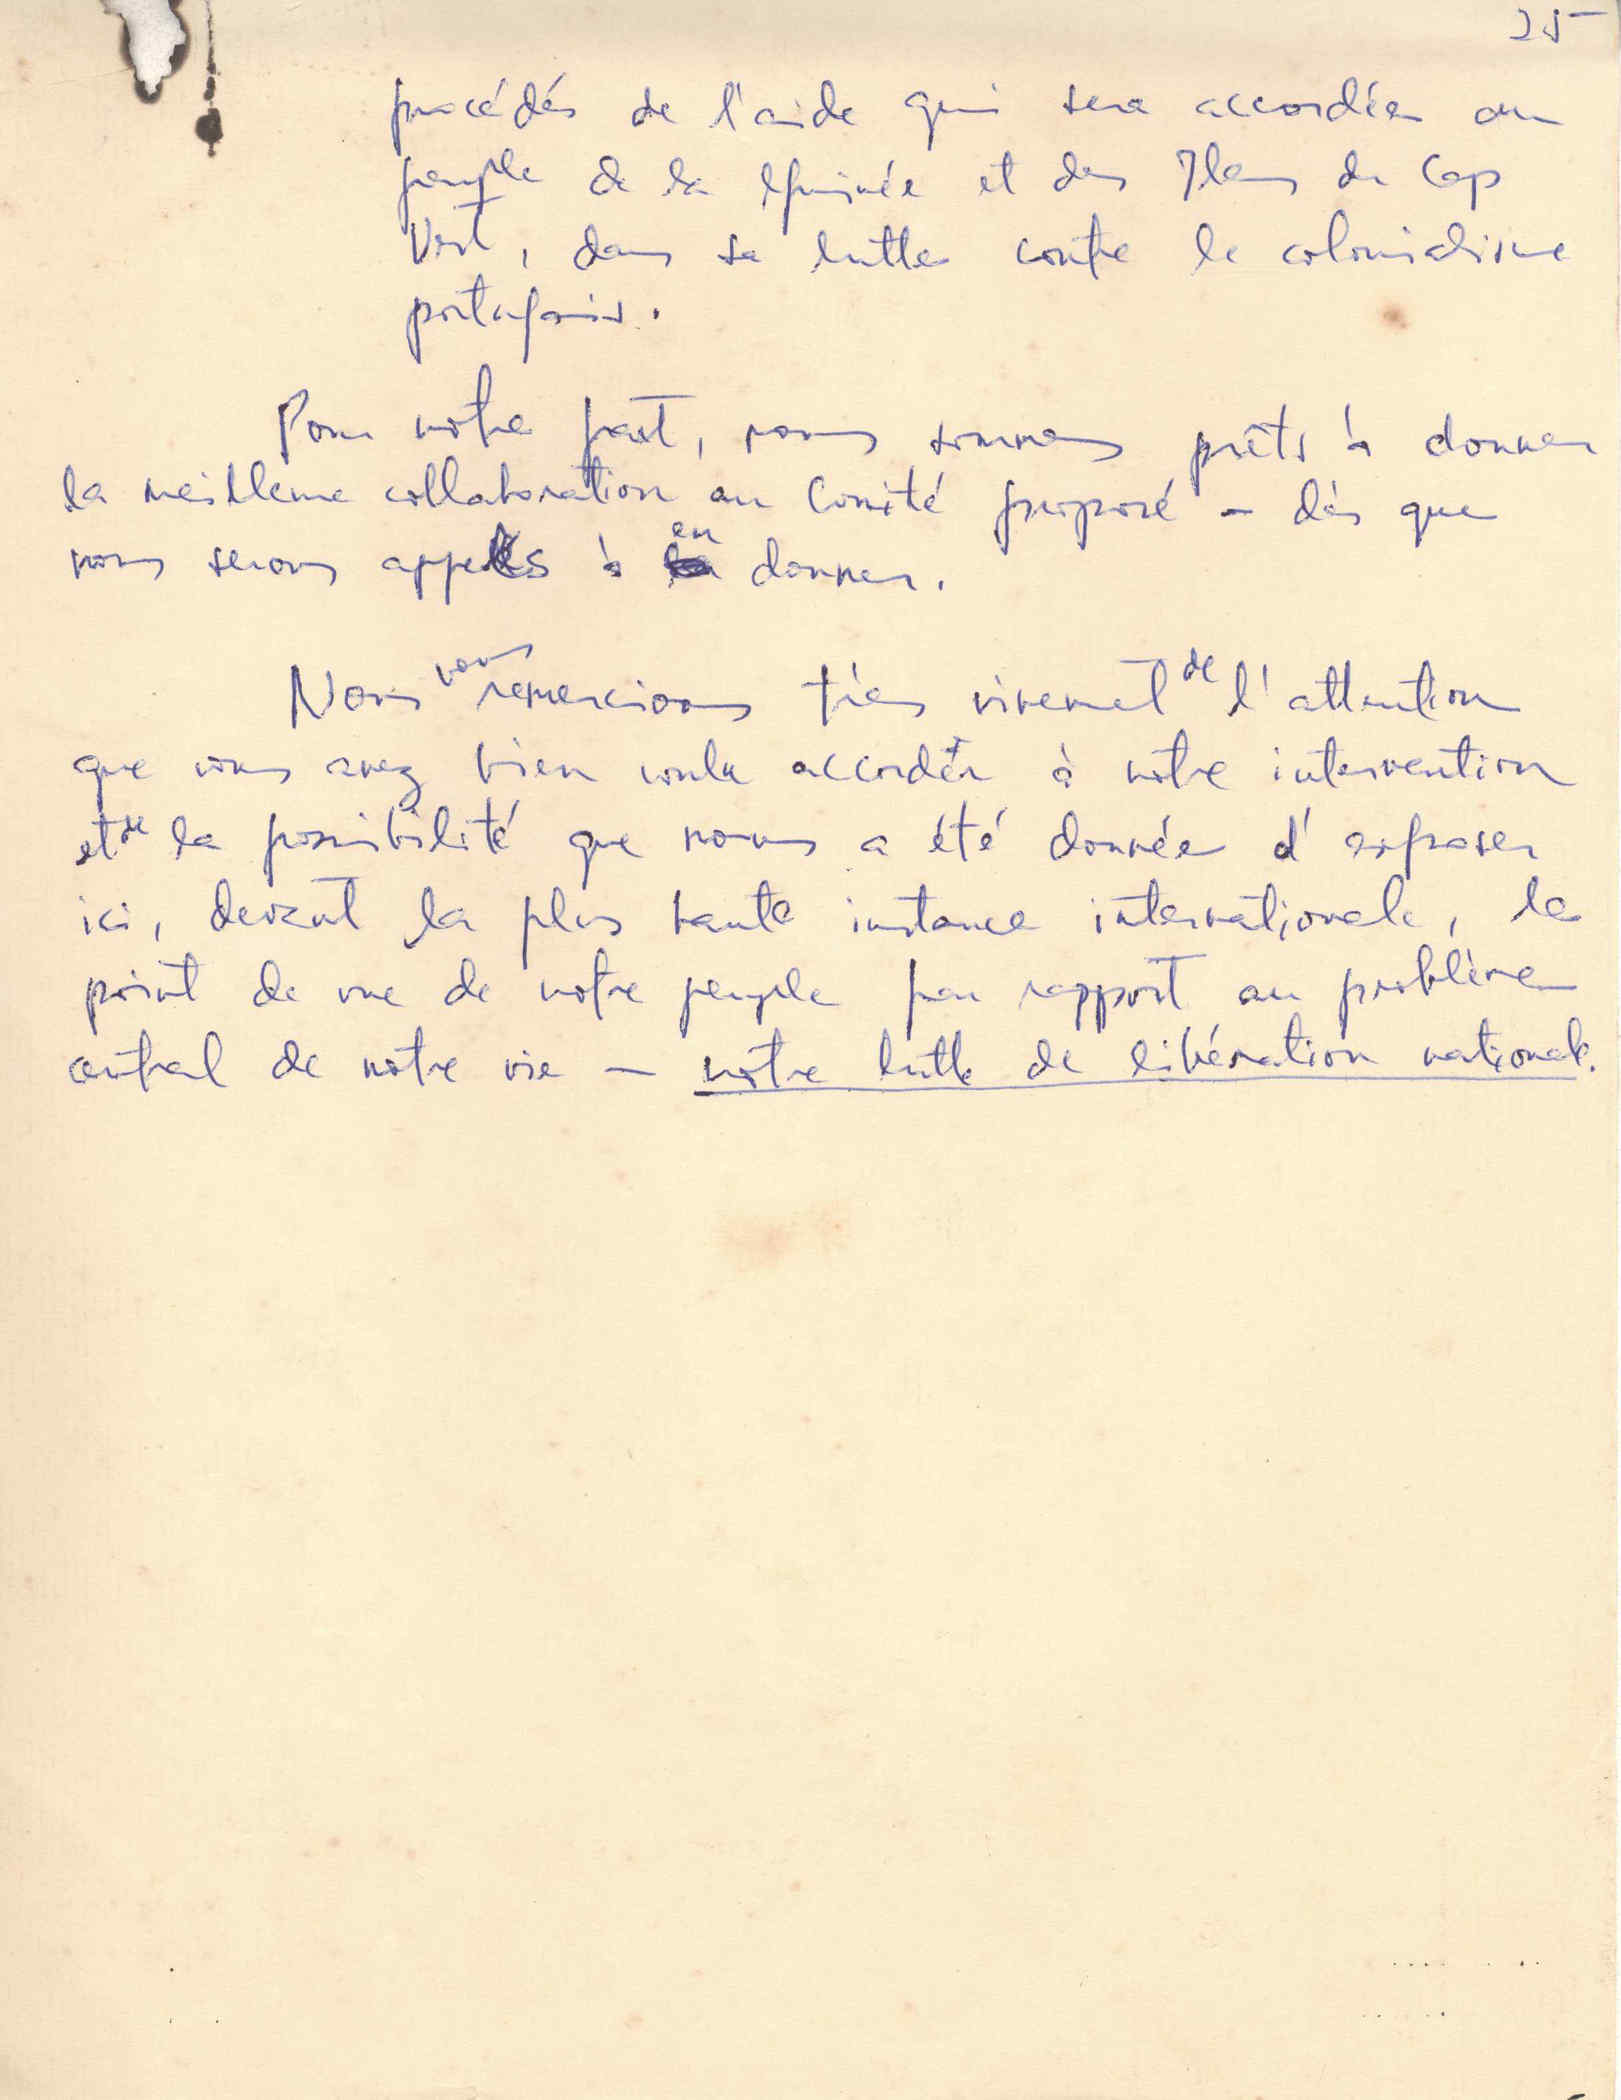 25
procédés de l'aide qui sera accordée au
peuple de la Guinée et des Iles du Cap
Vert, dans sa lutte contre le colonialisme
portugais.
Pour notre part, nous sommes prêts à donner
la meilleure collaboration au Comité proposé - dès que
nous serons appelés à en donner.
Nous vous remercions très vivement de l'attention
que vous avez bien voulu accorder à notre intervention
et de la possibilité que nous a été donnée d'exposer
ici, devant la plus haute instance internationale, le
point de vue de notre peuple par rapport au problème
central de notre vie - notre lutte de libération nationale.